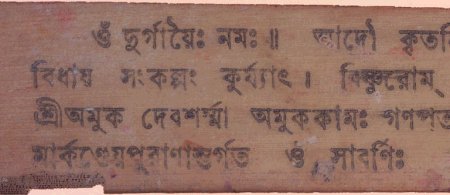 ওঁ দুর্গায়ৈঃ নমঃ ॥ আদৌ কৃতনি
বিধায় সংকল্পং কুর্য্যাৎ । বিষ্ণুরোম্
শ্রীঅমুক দেবশর্ম্মা অমুককামঃ গণপত
মার্কণ্ডেয়পুরাণান্তর্গত ওঁ সাবর্ণিঃ